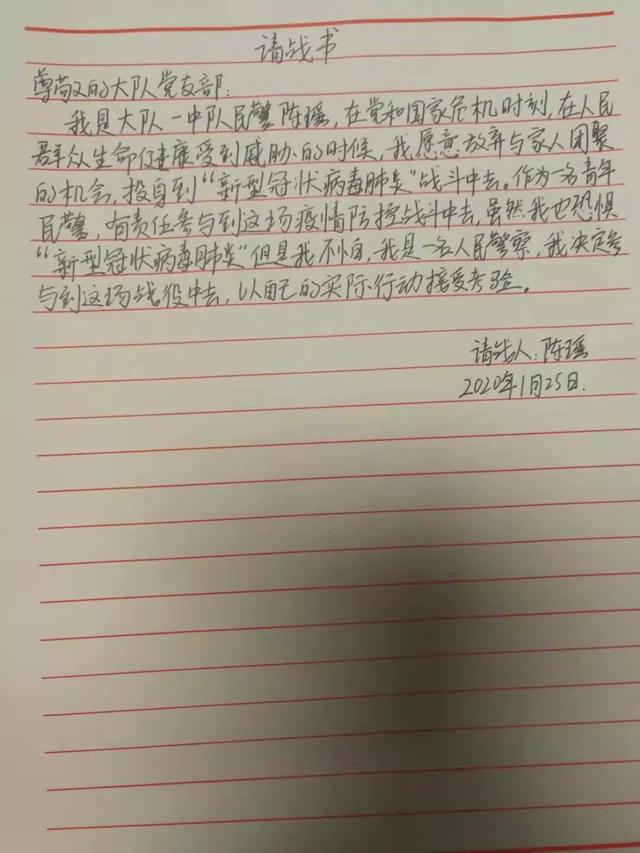 请战书
尊敬的大队党支部：
我是大队一中队民警陈瑶，在党和国家危机时刻，在人民
群众生命健康受到威胁的时候，我愿意放弃与家人团聚
的机会，投身到“新型冠状病毒肺炎”战斗中去。作为一名青年
民警，有责任参与到这场疫情防控战斗中去，虽然我也恐惧
“新型冠状病毒肺炎”但是我不怕，我是一名人民警察，我决定参
与到这场战役中去，以自己的实际行动接受考验。
请战人：陈瑶
2020年1月25日.